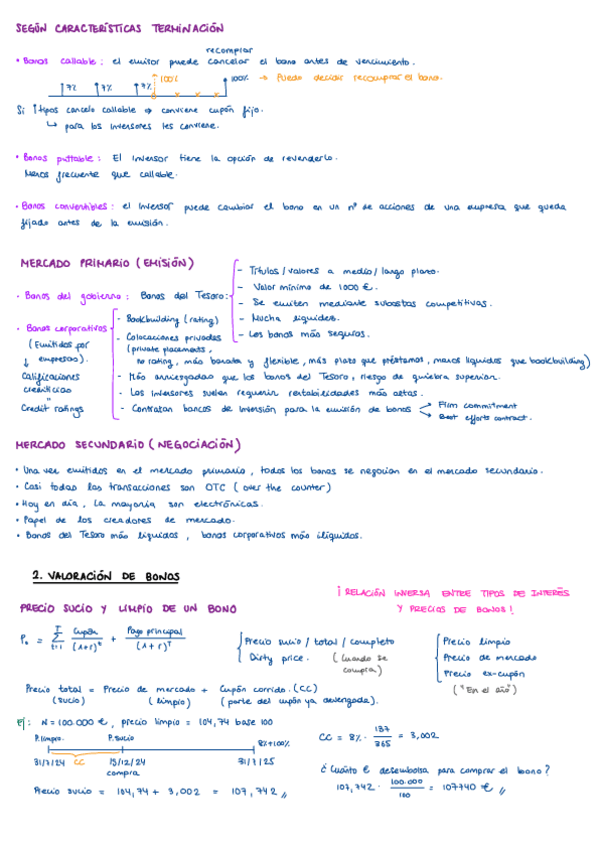 SEGÚN CARACTERÍSTICAS TERMINACIÓN
recomprar
• Bonos callable: el emisor puede cancelar el bono antes de vencimiento.
7% 7% 7% 100% 100% → Puedo decidir recomprar el bono.
Si ↑tipos cancelo callable ⇒ conviene cupón fijo.
↳ para los inversores les conviene.
• Bonos puttable: El inversor tiene la opción de revenderlo.
Menos frecuente que callable.
• Bonos convertibles: el inversor puede cambiar el bono en un nº de acciones de una empresa que queda
fijado antes de la emisión.
MERCADO PRIMARIO (EMISIÓN)
• Bonos del gobierno: Bonos del Tesoro:
- Títulos/valores a medio/largo plazo.
- Valor mínimo de 1000 €.
- Se emiten mediante subastas competitivas.
- Mucha liquidez.
- Los bonos más seguros.
• Bonos corporativos
(Emitidos por
↓ empresas).
Calificaciones
crediticias
"
Credit ratings
- Bookbuilding (rating)
- Colocaciones privadas
(private placements,
no rating, más barata y flexible, más plazo que préstamos, menos líquidos que bookbuilding)
- Más arriesgados que los bonos del Tesoro, riesgo de quiebra superior.
- Los inversores suelen requerir rentabilidades más altas.
- Contratan bancos de inversión para la emisión de bonos
→ Firm commitment
→ Best efforts contract.
MERCADO SECUNDARIO (NEGOCIACIÓN)
• Una vez emitidos en el mercado primario, todos los bonos se negocian en el mercado secundario.
• Casi todas las transacciones son OTC (over the counter)
• Hoy en día, la mayoría son electrónicas.
• Papel de los creadores de mercado.
• Bonos del Tesoro más líquidos, bonos corporativos más ilíquidos.
2. VALORACIÓN DE BONOS
¡RELACIÓN INVERSA ENTRE TIPOS DE INTERÉS
Y PRECIOS DE BONOS!
PRECIO SUCIO Y LIMPIO DE UN BONO
P₀ = Σ_{t=1}^{T} Cupón/(1+r)^t + Pago principal/(1+r)^T
Precio sucio / total / completo
Dirty price. (Cuando se
compra)
Precio limpio
Precio de mercado
Precio ex-cupón
("En el año")
Precio total = Precio de mercado + Cupón corrido. (CC)
(sucio) (limpio) (parte del cupón ya devengada).
Ej: N = 100.000 €, precio limpio = 104,74 base 100
P.limpio. P.sucio 8%+100%
31/7/24 CC 15/12/24 31/7/25
compra
CC = 8% · 137/365 = 3,002
Precio sucio = 104,74 + 3,002 = 107,742 //
¿Cuánto € desembolsa para comprar el bono?
107,742 · 100.000/100 = 107740 € //